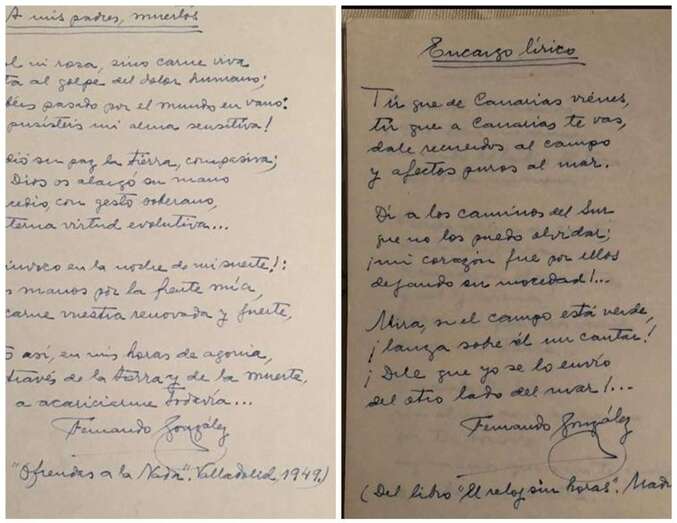 A mis padres, muertos
ni rosa, sino carne viva
al golpe del dolor humano;
pasado por el mundo en vano:
pusísteis mi alma sensitiva!
su paz la tierra, compasiva;
Dios os alargó su mano
con gesto soberano,
virtud evolutiva...
en la noche de mi suerte!:
manos por la frente mía,
carne vuestra renovada y fuerte,
así, en mis horas de agonía,
través de la tierra y de la muerte,
a acariciarme todavía...
Fernando González
"Ofrendas a la Nada". Valladolid, 1949.)
Encargo lírico
Tú que de Canarias vienes,
tú que a Canarias te vas,
dale recuerdos al campo
y afectos puros al mar.
Di a los caminos del Sur
que no los puedo olvidar;
¡mi corazón fue por ellos
dejando su mocedad!...
Mira, si el campo está verde,
¡lanza sobre él un cantar!
¡Dile que yo se lo envío
del otro lado del mar!...
Fernando González
(Del libro "El reloj sin horas".